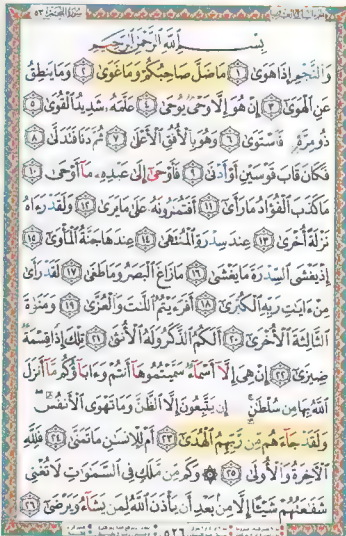 سُورَةُ النَّجْمِ ٥٣
بِسْمِ ٱللَّهِ ٱلرَّحْمَٰنِ ٱلرَّحِيمِ
وَٱلنَّجْمِ إِذَا هَوَىٰ ١ مَا ضَلَّ صَاحِبُكُمْ وَمَا غَوَىٰ ٢ وَمَا يَنطِقُ
عَنِ ٱلْهَوَىٰ ٣ إِنْ هُوَ إِلَّا وَحْىٌ يُوحَىٰ ٤ عَلَّمَهُۥ شَدِيدُ ٱلْقُوَىٰ ٥
ذُو مِرَّةٍ فَٱسْتَوَىٰ ٦ وَهُوَ بِٱلْأُفُقِ ٱلْأَعْلَىٰ ٧ ثُمَّ دَنَا فَتَدَلَّىٰ ٨
فَكَانَ قَابَ قَوْسَيْنِ أَوْ أَدْنَىٰ ٩ فَأَوْحَىٰٓ إِلَىٰ عَبْدِهِۦ مَآ أَوْحَىٰ ١٠
مَا كَذَبَ ٱلْفُؤَادُ مَا رَأَىٰٓ ١١ أَفَتُمَٰرُونَهُۥ عَلَىٰ مَا يَرَىٰ ١٢ وَلَقَدْ رَءَاهُ
نَزْلَةً أُخْرَىٰ ١٣ عِندَ سِدْرَةِ ٱلْمُنتَهَىٰ ١٤ عِندَهَا جَنَّةُ ٱلْمَأْوَىٰٓ ١٥
إِذْ يَغْشَى ٱلسِّدْرَةَ مَا يَغْشَىٰ ١٦ مَا زَاغَ ٱلْبَصَرُ وَمَا طَغَىٰ ١٧ لَقَدْ رَأَىٰ
مِنْ ءَايَٰتِ رَبِّهِ ٱلْكُبْرَىٰٓ ١٨ أَفَرَءَيْتُمُ ٱللَّٰتَ وَٱلْعُزَّىٰ ١٩ وَمَنَوٰةَ
ٱلثَّالِثَةَ ٱلْأُخْرَىٰٓ ٢٠ أَلَكُمُ ٱلذَّكَرُ وَلَهُ ٱلْأُنثَىٰ ٢١ تِلْكَ إِذًا قِسْمَةٌ
ضِيزَىٰٓ ٢٢ إِنْ هِىَ إِلَّآ أَسْمَآءٌ سَمَّيْتُمُوهَآ أَنتُمْ وَءَابَآؤُكُم مَّآ أَنزَلَ
ٱللَّهُ بِهَا مِن سُلْطَٰنٍ إِن يَتَّبِعُونَ إِلَّا ٱلظَّنَّ وَمَا تَهْوَى ٱلْأَنفُسُ
وَلَقَدْ جَآءَهُم مِّن رَّبِّهِمُ ٱلْهُدَىٰٓ ٢٣ أَمْ لِلْإِنسَٰنِ مَا تَمَنَّىٰ ٢٤ فَلِلَّهِ
ٱلْأَخِرَةُ وَٱلْأُولَىٰ ٢٥ ۞ وَكَم مِّن مَّلَكٍ فِى ٱلسَّمَٰوَٰتِ لَا تُغْنِى
شَفَٰعَتُهُمْ شَيْـًٔا إِلَّا مِنۢ بَعْدِ أَن يَأْذَنَ ٱللَّهُ لِمَن يَشَآءُ وَيَرْضَىٰٓ ٢٦
٥٢٦